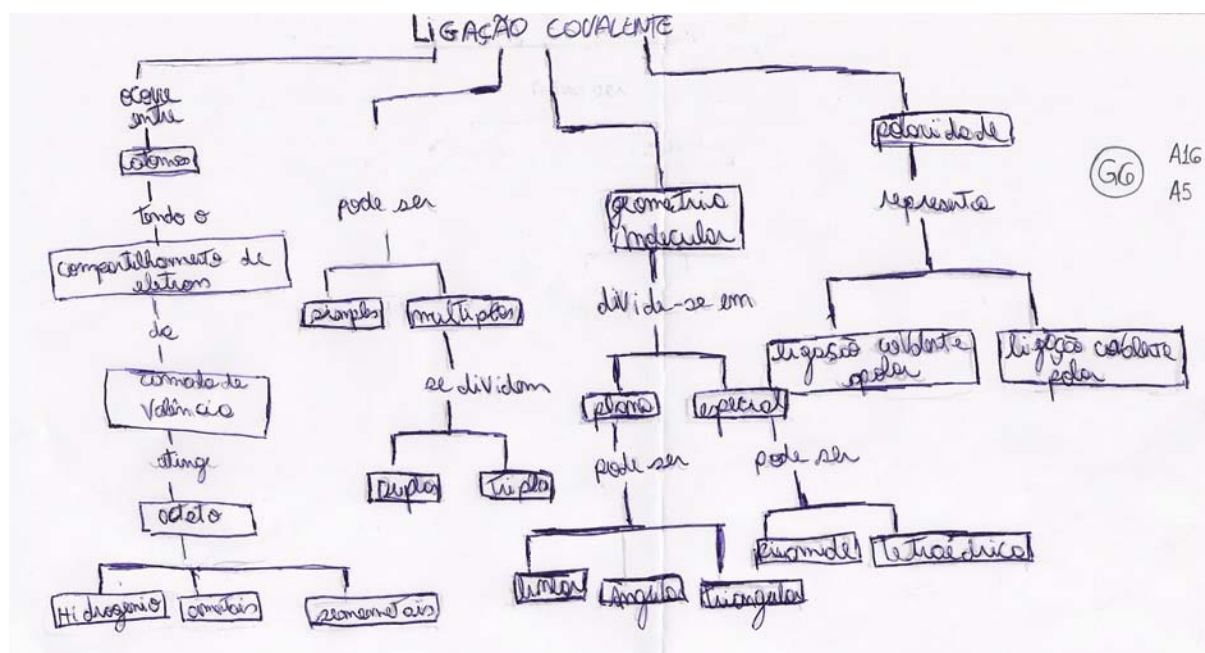 LIGAÇÃO COVALENTE
ocorre
entre
átomos
tendo o
compartilhamento de
eletrons
da
camada de
Valência
atinge
octeto
Hidrogenio
ametais
semimetais
pode ser
simples
multiplas
se dividem
Duplas
tripla
geometria
molecular
divide-se em
plana
especial
pode ser
linear
Angular
triangular
pode ser
piramide
tetraédrica
polaridade
representa
ligação covalente
apolar
ligação covalente
polar
G6
A16
A5